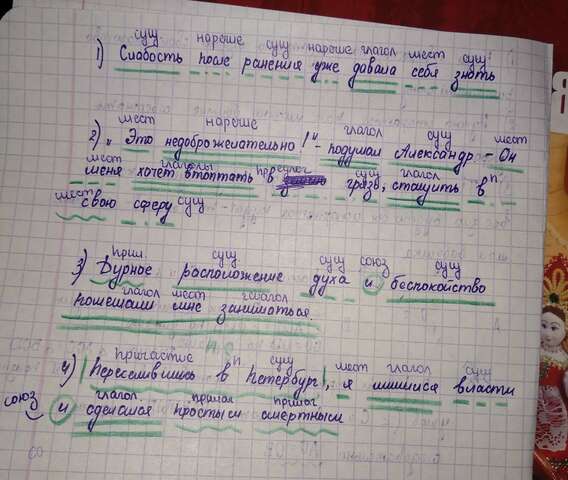 сущ. наречие сущ наречие глагол мест сущ.
1) Слабость после ранения уже давала себя знать
мест наречие глагол сущ мест
2) „Это недоброжелательно!" - подумал Александр - Он
мест глаголы предлог сущ глагол п.
меня хочет втоптать в грязь, стащить в
мест сущ
свою сферу
прил. сущ. сущ союз сущ
3) Дурное расположение духа и беспокойство
глагол мест глагол
помешали мне заниматься.
причастие п сущ мест глагол сущ
4) Переселившись в Петербург, я лишился власти
союз глагол прилаг прилаг
и сделался простым смертным